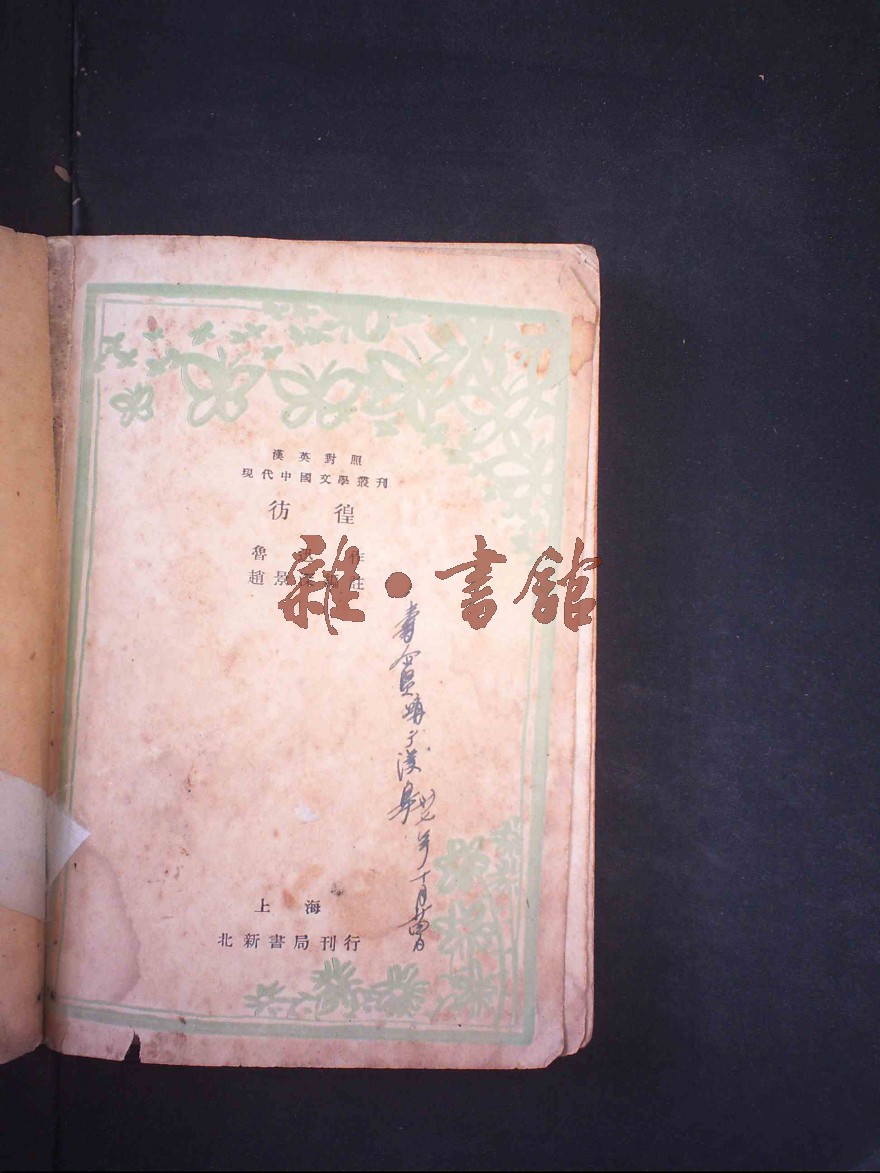 漢英對照
現代中國文學叢刊
彷徨
魯 作
趙景 註
雜·書館
寶購于漢
年十月
上海
北新書局刊行